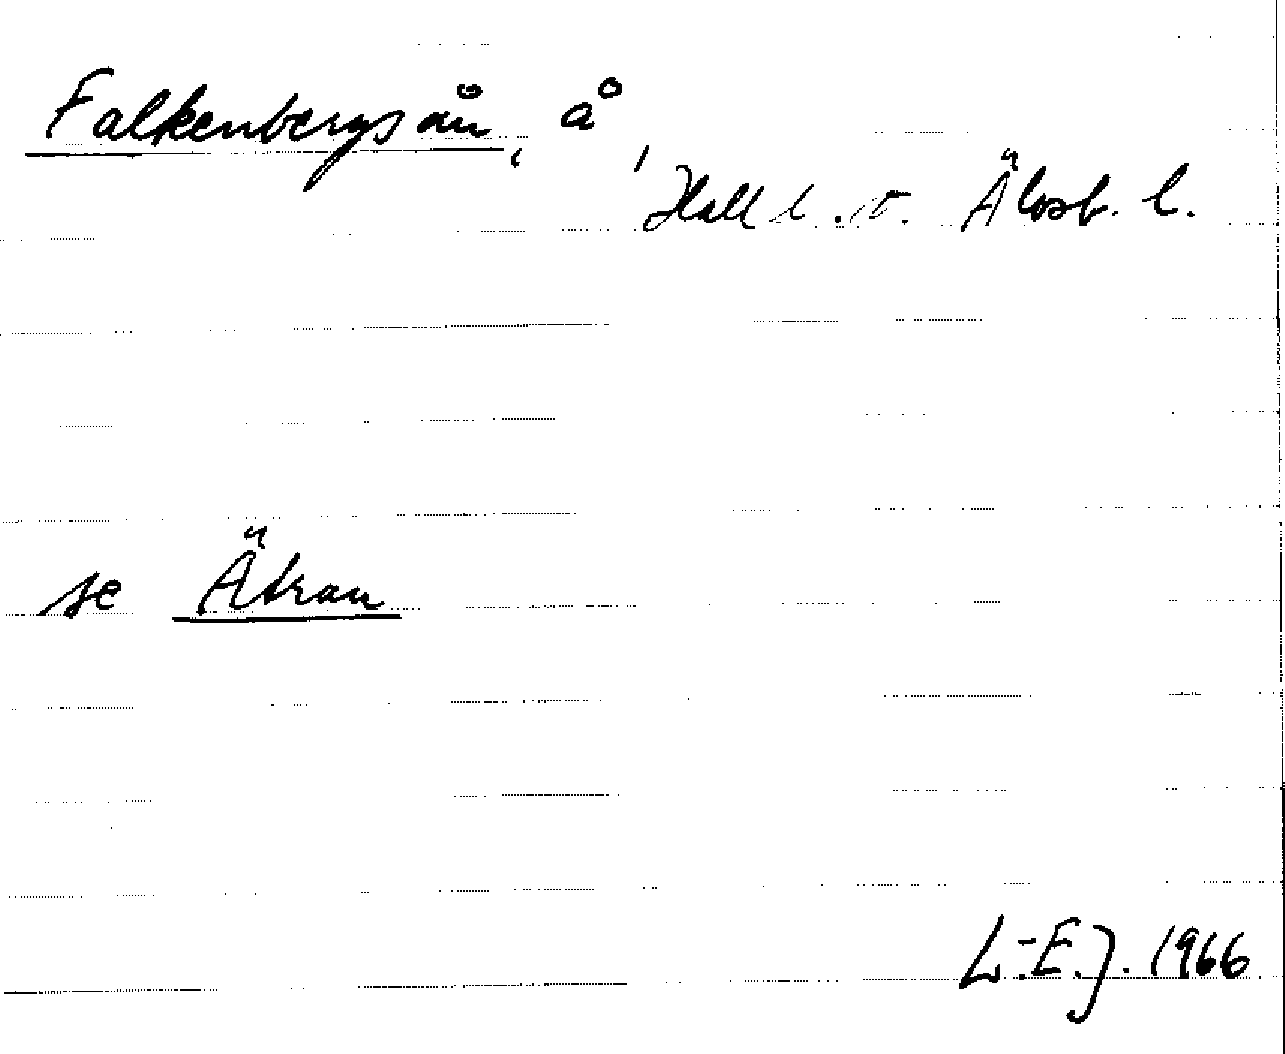 Falkenbergsån, å
Hall l. o. Älvsb. l.
se Ätran
L.-E. J. 1966